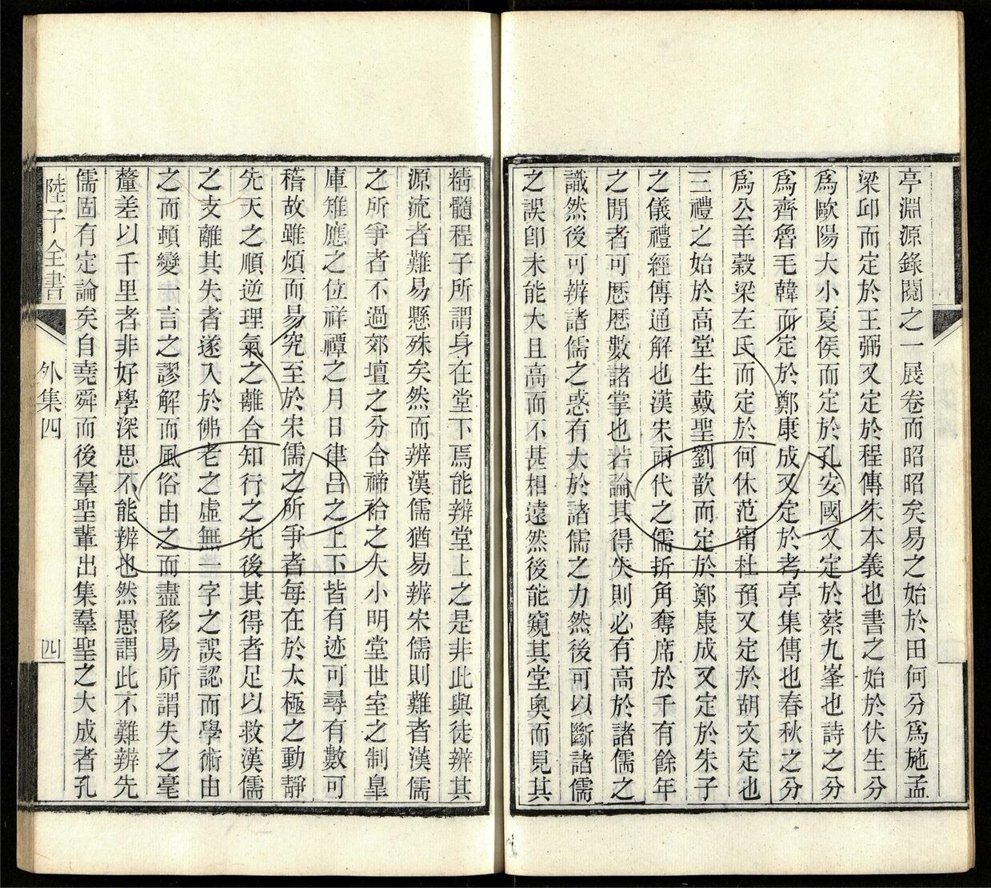 亭淵源錄閱之一展卷而昭昭矣易之始於田何分爲施孟
梁邱而定於王弼又定於程傳朱本義也書之始於伏生分
爲歐陽大小夏侯而定於孔安國又定於蔡九峯也詩之分
爲齊魯毛韓而定於鄭康成又定於考亭集傳也春秋之分
爲公羊穀梁左氏而定於何休范甯杜預又定於胡文定也
三禮之始於高堂生戴聖劉歆而定於鄭康成又定於朱子
之儀禮經傳通解也漢宋兩代之儒折角奪席於千有餘年
之閒者可歷歷數諸掌也若論其得失則必有高於諸儒之
識然後可辨諸儒之惑有大於諸儒之力然後可以斷諸儒
之誤卽未能大且高而不甚相遠然後能窺其堂奧而見其
精髓程子所謂身在堂下焉能辨堂上之是非此與徒辨其
源流者難易懸殊矣然而辨漢儒猶易辨宋儒則難者漢儒
之所爭者不過郊壇之分合禘祫之大小明堂世室之制皐
庫雉應之位祥禫之月日律呂之上下皆有迹可尋有數可
稽故雖煩而易究至於宋儒之所爭者每在於太極之動靜
先天之順逆理氣之離合知行之先後其得者足以救漢儒
之支離其失者遂入於佛老之虛無一字之誤認而學術由
之而頓變一言之謬解而風俗由之而盡移易所謂失之毫
釐差以千里者非好學深思不能辨也然愚謂此不難辨先
儒固有定論矣自堯舜而後羣聖輩出集羣聖之大成者孔
陸子全書
外集四
四